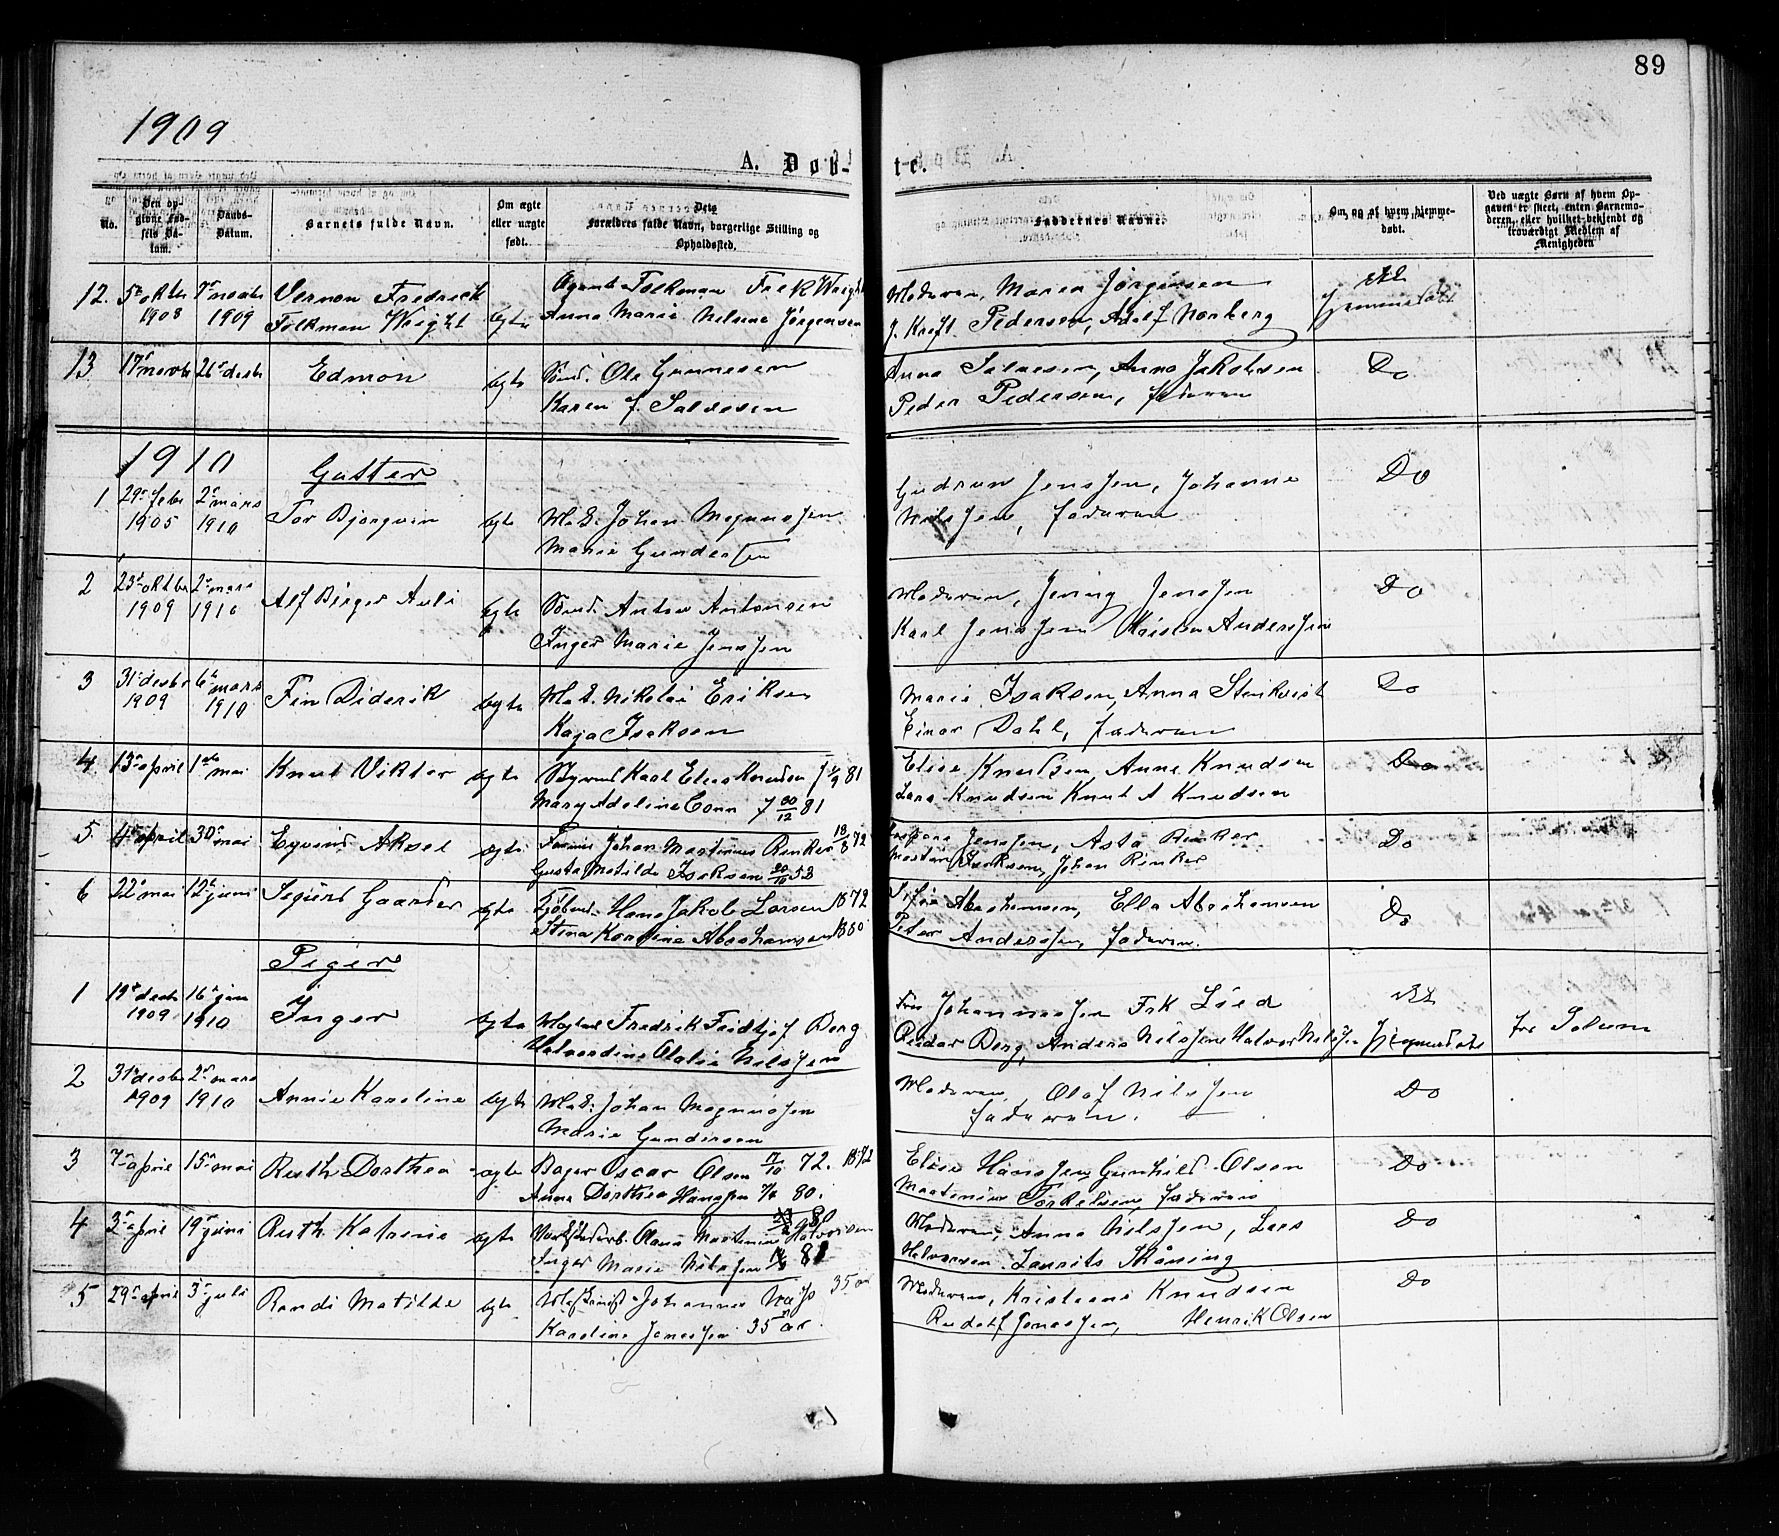 89
1909
A. Døb-
te.
No.
Den op-
givne Fød-
sels Da-
tum.
Daabs-
Datum.
Barnets fulde Navn.
Om ægte
eller uægte
født.
Dets
Forældres fulde Navn, borgerlige Stilling og
Opholdssted.
Faddernes Navne.
Om og af hvem hjemme-
døbt.
Ved uægte Børn af hvem Op-
gaven er skeet, enten Barnemo-
deren, eller hvilket bekjendt og
troværdigt Medlem af
Menigheden
12.
1908
1909
Vernon Fredrick
Folkman Wright
ægte
Folkman
Wright
Anna Marie Jørgensen
Moderen, Maren Jørgensen
Pedersen, Adolf Norberg
Ikke
hjemmedøbt
13
17 novbr
26 desbr
Edmon
ægte
Ole Gunnesen
Karen J. Salvesen
Anna Salvesen, Anna Jakobsen
Peder Pedersen, faderen
Do
1910
Gutter
1
29 febr
1905
2 mars
1910
Tor Bjørgvin
ægte
Johan Magnussen
Marie Gundersen
Gudrun Jenssen, Johanne
Nilssen, faderen
Do
2
23 oktbr
1909
2 mars
1910
Alf Birger
ægte
Anton Antonsen
Inger Marie Jenssen
Moderen, Jenny Jenssen
Karl Jenssen Anderssen
Do
3
31 desbr
1909
6 mars
1910
Fin Diderik
ægte
Nikolai Eriksen
Kaja Isaksen
Marie Isaksen, Anna Stenkvist
Einar Dahl, faderen
Do
4
13 april
1 mai
Knut Viktor
ægte
Karl Elias Knudsen
81
Mary Adeline 81
Elise Knudsen, Anne Knudsen
Lars Knudsen Knut A Knudsen
Do
5
4 april
30 mai
Eyvind Aksel
ægte
Johan Martinus Renker 72
Gusta Matilde Isaksen
Jenssen, Asta Renker
Isaksen, Johan Renker
Do
6
22 mai
12 juni
Sigurd Gaarder
ægte
Hans Jakob Larsen 1872
Stina Karoline Abrahamsen
Abrahamsen, Ella Abrahamsen
Peter Anderssen, faderen.
Do
Piger
1
19 desbr
1909
16 jan
1910
Inger
ægte
Fredrik Fridtjof Berg
Halvordine Olalie Nilssen
Fru Johannessen Frk
Reidar Berg, Anders Nilssen Halvor Nilssen
hjemmedøbt
fra Solum
2
31 desbr
1909
2 mars
1910
Annie Karoline
ægte
Johan Magnussen
Marie Gundersen
Moderen, Olaf Nilssen
faderen.
Do
3
7 april
15 mai
Ruth Dorthea
ægte
Bager Oscar Olsen 17/10 72. 1872
Anna Dorthea Hanssen 80.
Elise Hanssen, Gunhild Olsen
Martinius Torkelsen, faderen
Do
4
3 april
19 juni
Ruth Katrine
ægte
Olaus Martinius Halvorsen 80
Inger Marie Nilssen 81
Moderen, Anna Nilssen, Lars
Halvorsen, Laurits Skåning
Do
5
29 april
3 juli
Randi Matilde
ægte
Johannes 35 år
Karoline Jonassen 35 år.
Moderen, Kristiane Knudsen
Rudolf Jonassen, Henrik Olsen
Do